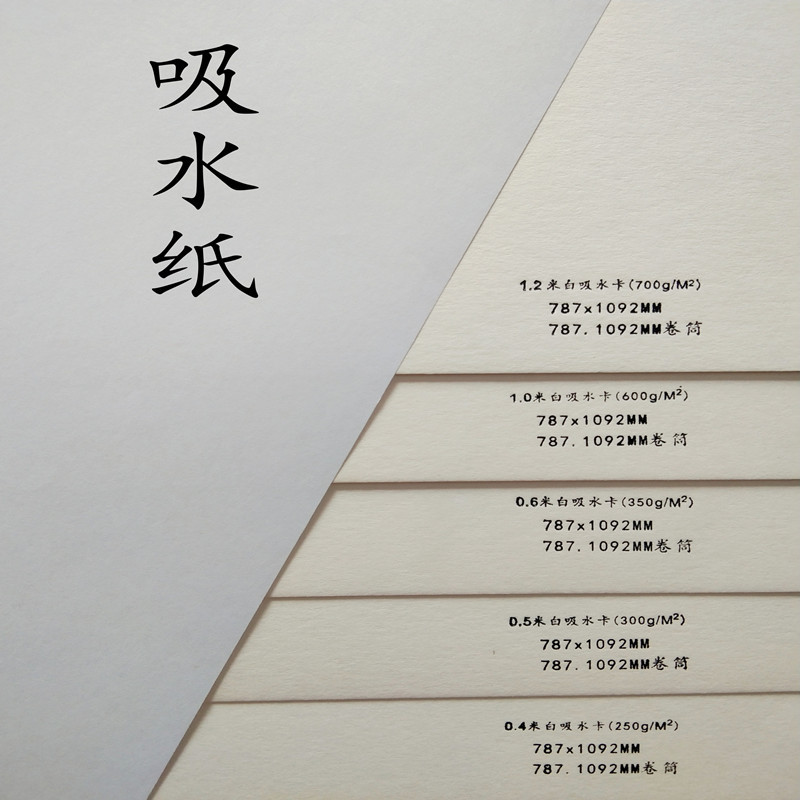 吸水纸
1.2米白吸水卡(700g/M²)
787x1092MM
787.1092MM卷筒
1.0米白吸水卡(600g/M²)
787x1092MM
787.1092MM卷筒
0.6米白吸水卡(350g/M²)
787x1092MM
787.1092MM卷筒
0.5米白吸水卡(300g/M²)
787x1092MM
787.1092MM卷筒
0.4米白吸水卡(250g/M²)
787x1092MM
787.1092MM卷筒